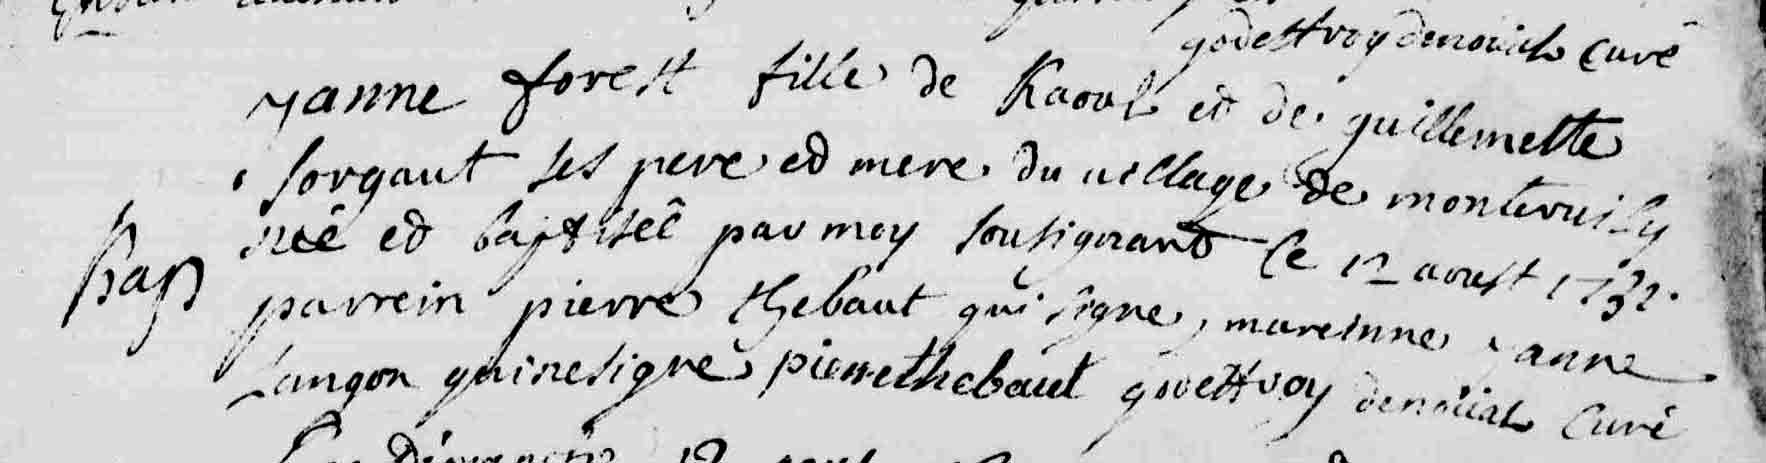 godeffroy denoüal Curé
yanne forest fille de Raoul et de guillemette
sorgaut ses pere et mere du village de monteruily
neé et baptiseê par moy sousignant le 12 aoust 1732
Bap
parrein pierre thebaut qui signe, mareinne yanne
Langon qui ne signe, pierre thebaut godeffroy denoüal Curé